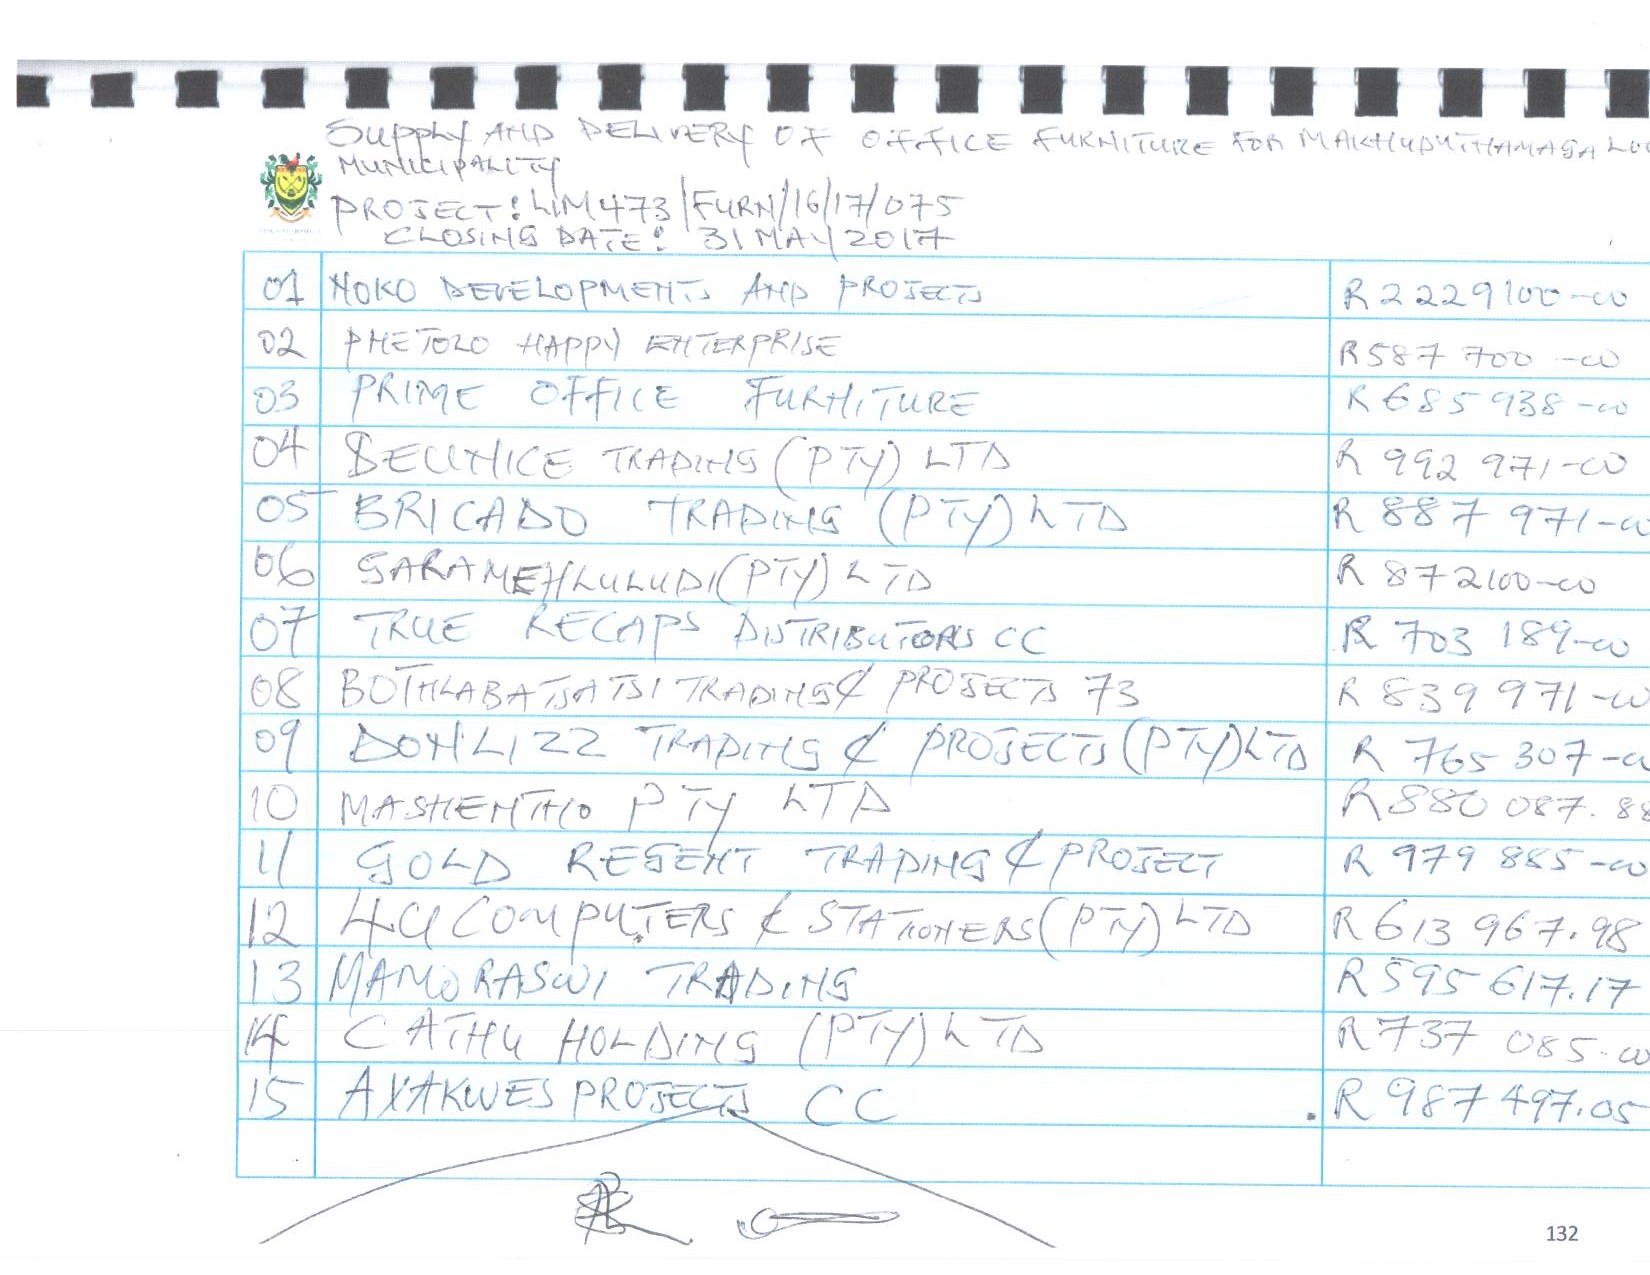 SUPPLY AND DELIVERY OF OFFICE FURNITURE FOR MAKHUDUTHAMAGA LOC
MUNICIPALITY
PROJECT: LIM473/FURN/16/17/075
CLOSING DATE: 31 MAY 2017
01 NOKO DEVELOPMENTS AND PROJECTS R2229100-00
02 PHETOLO HAPPY ENTERPRISE R587 700-00
03 PRIME OFFICE FURNITURE R685938-00
04 BEUNICE TRADING (PTY) LTD R 992 971-00
05 BRICADO TRADING (PTY) LTD R 887 971-00
06 SARAMEHLULUDI (PTY) LTD R 872100-00
07 TRUE RECAPS DISTRIBUTORS CC R 703 189-00
08 BOTHLABATSATSI TRADING & PROJECTS 73 R 839 971-00
09 DONLIZZ TRADING & PROJECTS (PTY) LTD R 765 307-00
10 MASHENTHO PTY LTD R880 087.88
11 GOLD REGENT TRADING & PROJECT R 979 885-00
12 4U COMPUTERS & STATIONERS (PTY) LTD R613 967.98
13 MAMORASWI TRADING R595 617.17
14 CATHU HOLDING (PTY) LTD R737 085.00
15 AXAKWES PROJECTS CC R 987 497.05
132